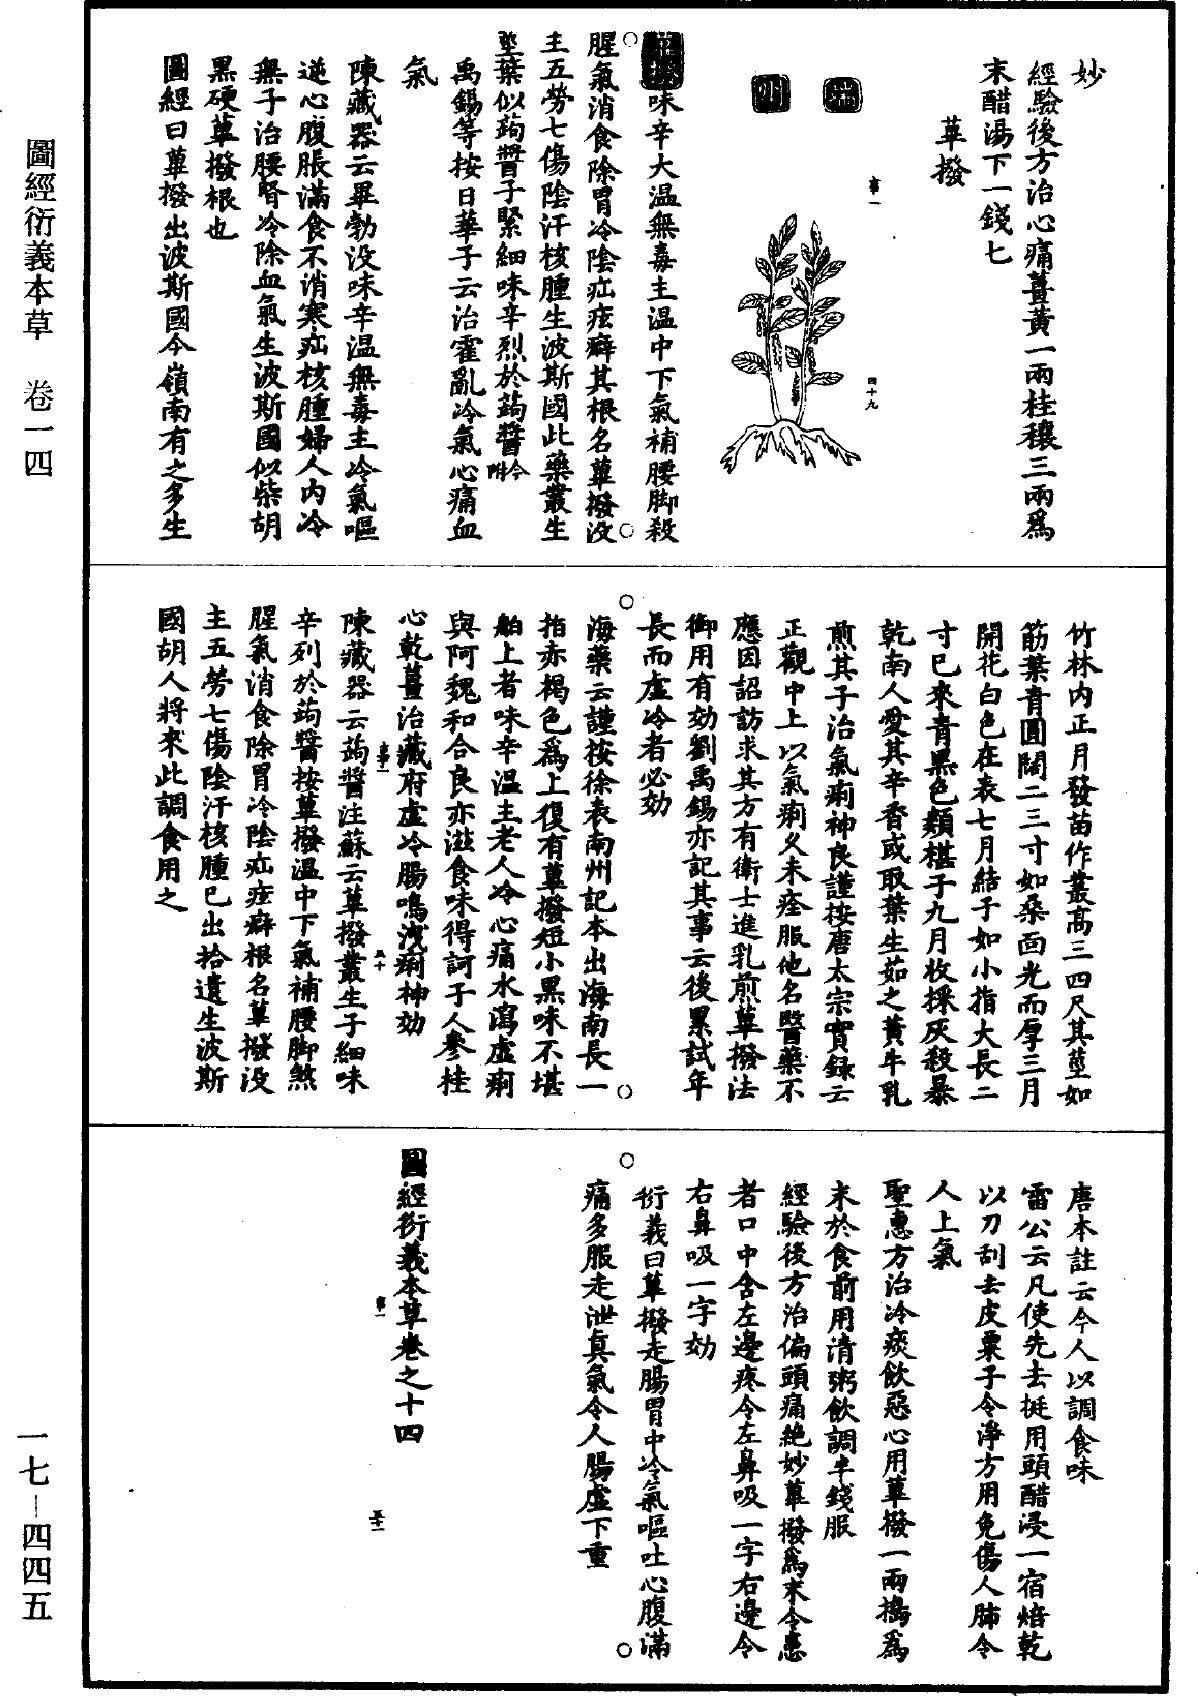 妙
經驗後方治心痛薑黃一兩桂穰三兩爲
末醋湯下一錢七
蓽撥
端
州
味辛大温無毒主温中下氣補腰脚殺
腥氣消食除胃冷陰疝痃癖其根名蓽撥没
主五勞七傷陰汗核腫生波斯國此藥叢生
莖葉似蒟醬子緊細味辛烈於蒟醬今附
禹錫等按日華子云治霍亂冷氣心痛血
氣
陳藏器云畢勃没味辛温無毒主冷氣嘔
逆心腹脹滿食不消寒疝核腫婦人内冷
無子治腰腎冷除血氣生波斯國似柴胡
黑硬蓽撥根也
圖經曰蓽撥出波斯國今嶺南有之多生
竹林内正月發苗作叢高三四尺其莖如
筋葉青圓闊二三寸如桑面光而厚三月
開花白色在表七月結子如小指大長二
寸巳來青黑色類椹子九月收採灰殺暴
乾南人愛其辛香或取葉生茹之黄牛乳
煎其子治氣痢神良謹按唐太宗實録云
正觀中上以氣痢久未痊服他名醫藥不
應因詔訪求其方有衛士進乳煎蓽撥法
御用有効劉禹錫亦記其事云後累試年
長而虚冷者必効
海藥云謹按徐表南州記本出海南長一
指赤褐色爲上復有蓽撥短小黑味不堪
舶上者味辛温主老人冷心痛水瀉虚痢
與阿魏和合良亦滋食味得訶子人參桂
心乾薑治藏府虚冷腸鳴洩痢神効
陳藏器云蒟醬注蘇云蓽撥叢生子細味
辛列於蒟醬按蓽撥温中下氣補腰脚煞
腥氣消食除胃冷陰疝痃癖根名蓽撥没
主五勞七傷陰汗核腫巳出拾遺生波斯
國胡人將來此調食用之
唐本註云今人以調食味
雷公云凡使先去挺用頭醋浸一宿焙乾
以刀刮去皮粟子令淨方用免傷人肺令
人上氣
聖惠方治冷痰飲惡心用蓽撥一兩搗爲
末於食前用清粥飲調半錢服
經驗後方治偏頭痛絶妙蓽撥爲末令患
者口中含左邊疼令左鼻吸一字右邊令
右鼻吸一字効
衍義曰蓽撥走腸胃中冷氣嘔吐心腹滿
痛多服走泄真氣令人腸虚下重
圖經衍義本草卷之十四
圖經衍義本草 卷一四
一七—四四五
四十九
五十